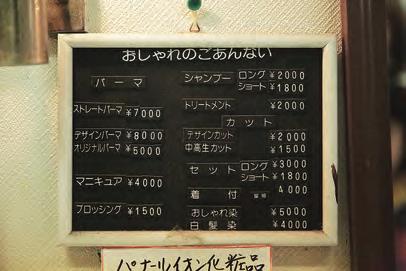 おしゃれのごあんない
パーマ
ストレートパーマ ¥7000
デザインパーマ ¥8000
オリジナルパーマ ¥5000
マニキュア ¥4000
ブロッシング ¥1500
シャンプー ロング ¥2000
ショート ¥1800
トリートメント ¥2000
カット
デザインカット ¥2000
中高生カット ¥1500
セット ロング ¥3000
ショート ¥1800
着付 4000
おしゃれ染 ¥5000
白髪染 ¥4000
パナールイオン化粧品